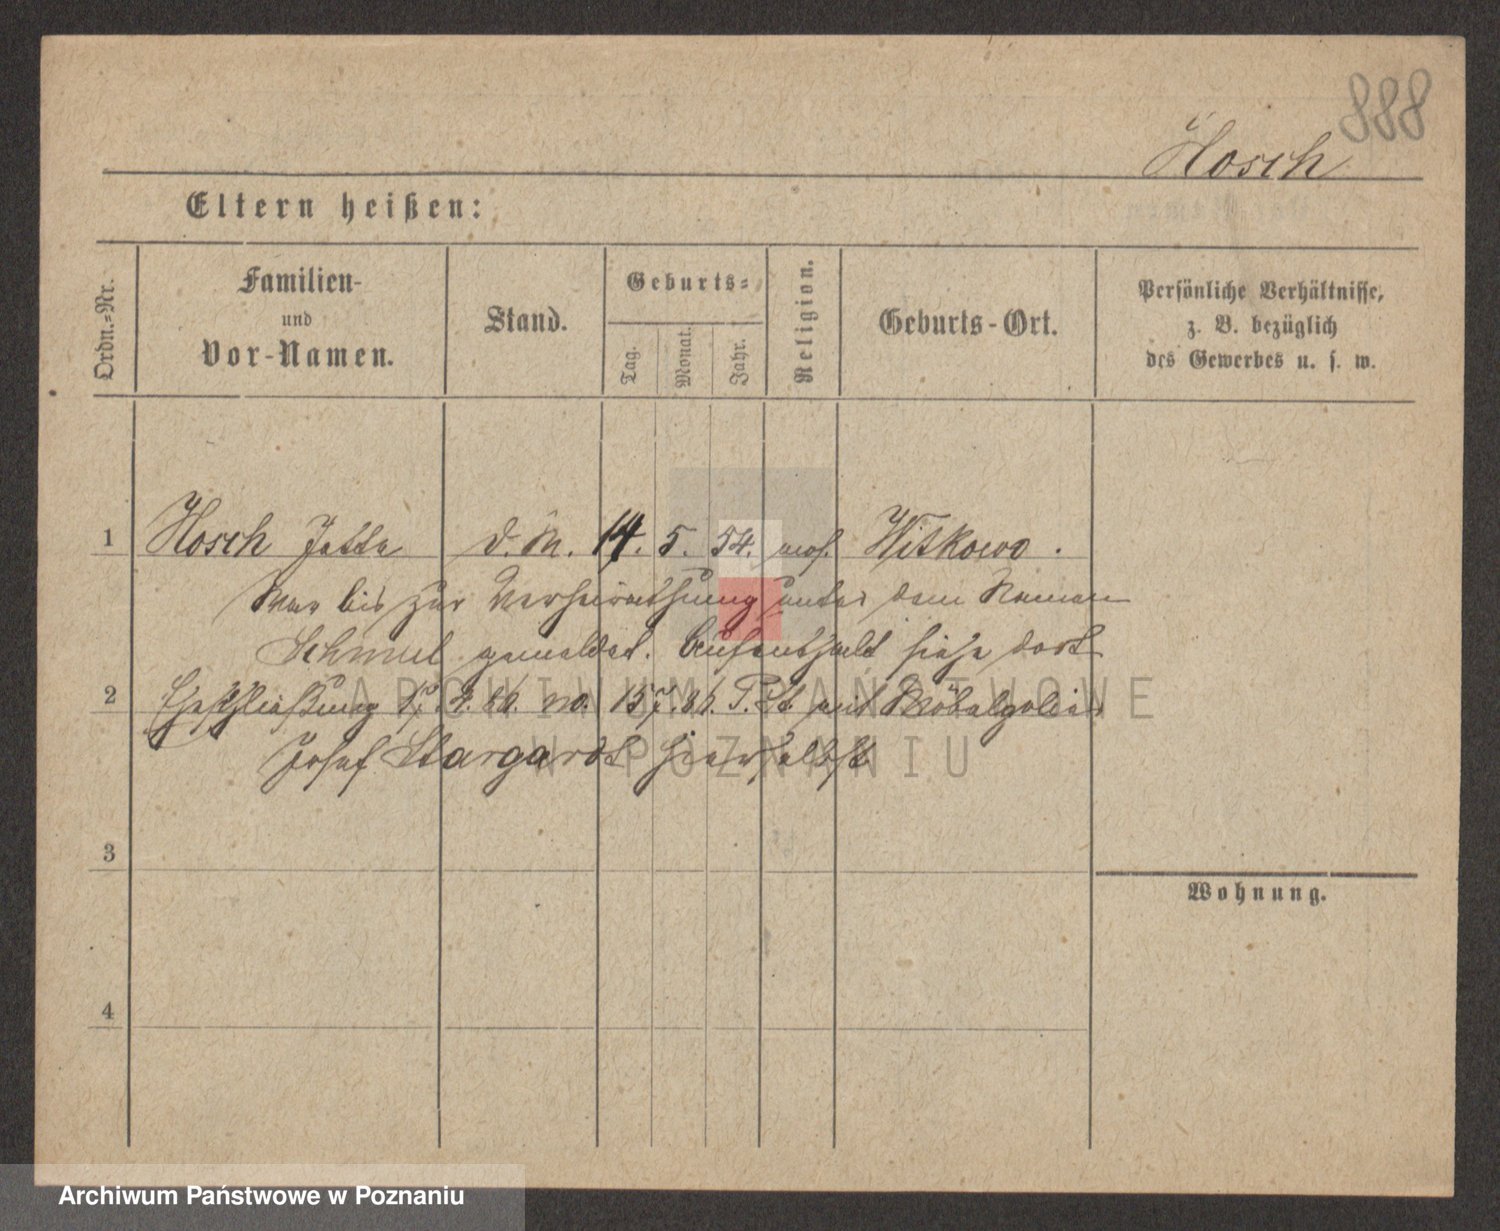 888
Hosch
Eltern heißen:
Ordn.-Nr.
Familien-
und
Vor-Namen.
Stand.
Geburts-
Tag.
Monat.
Jahr.
Religion.
Geburts-Ort.
Persönliche Verhältnisse,
z. B. bezüglich
des Gewerbes u. s. w.
1 Hosch Jette d. M. 14. 5. 54. mos. Witkowo.
War bis zur Verheirathung unter dem Namen
Schmul gemeldet. Aufenthalt siehe dort
2 Eheschließung mit
Josef Stargardt hierselbst
3
Wohnung.
4
ARCHIWUM PAŃSTWOWE
W POZNANIU
Archiwum Państwowe w Poznaniu